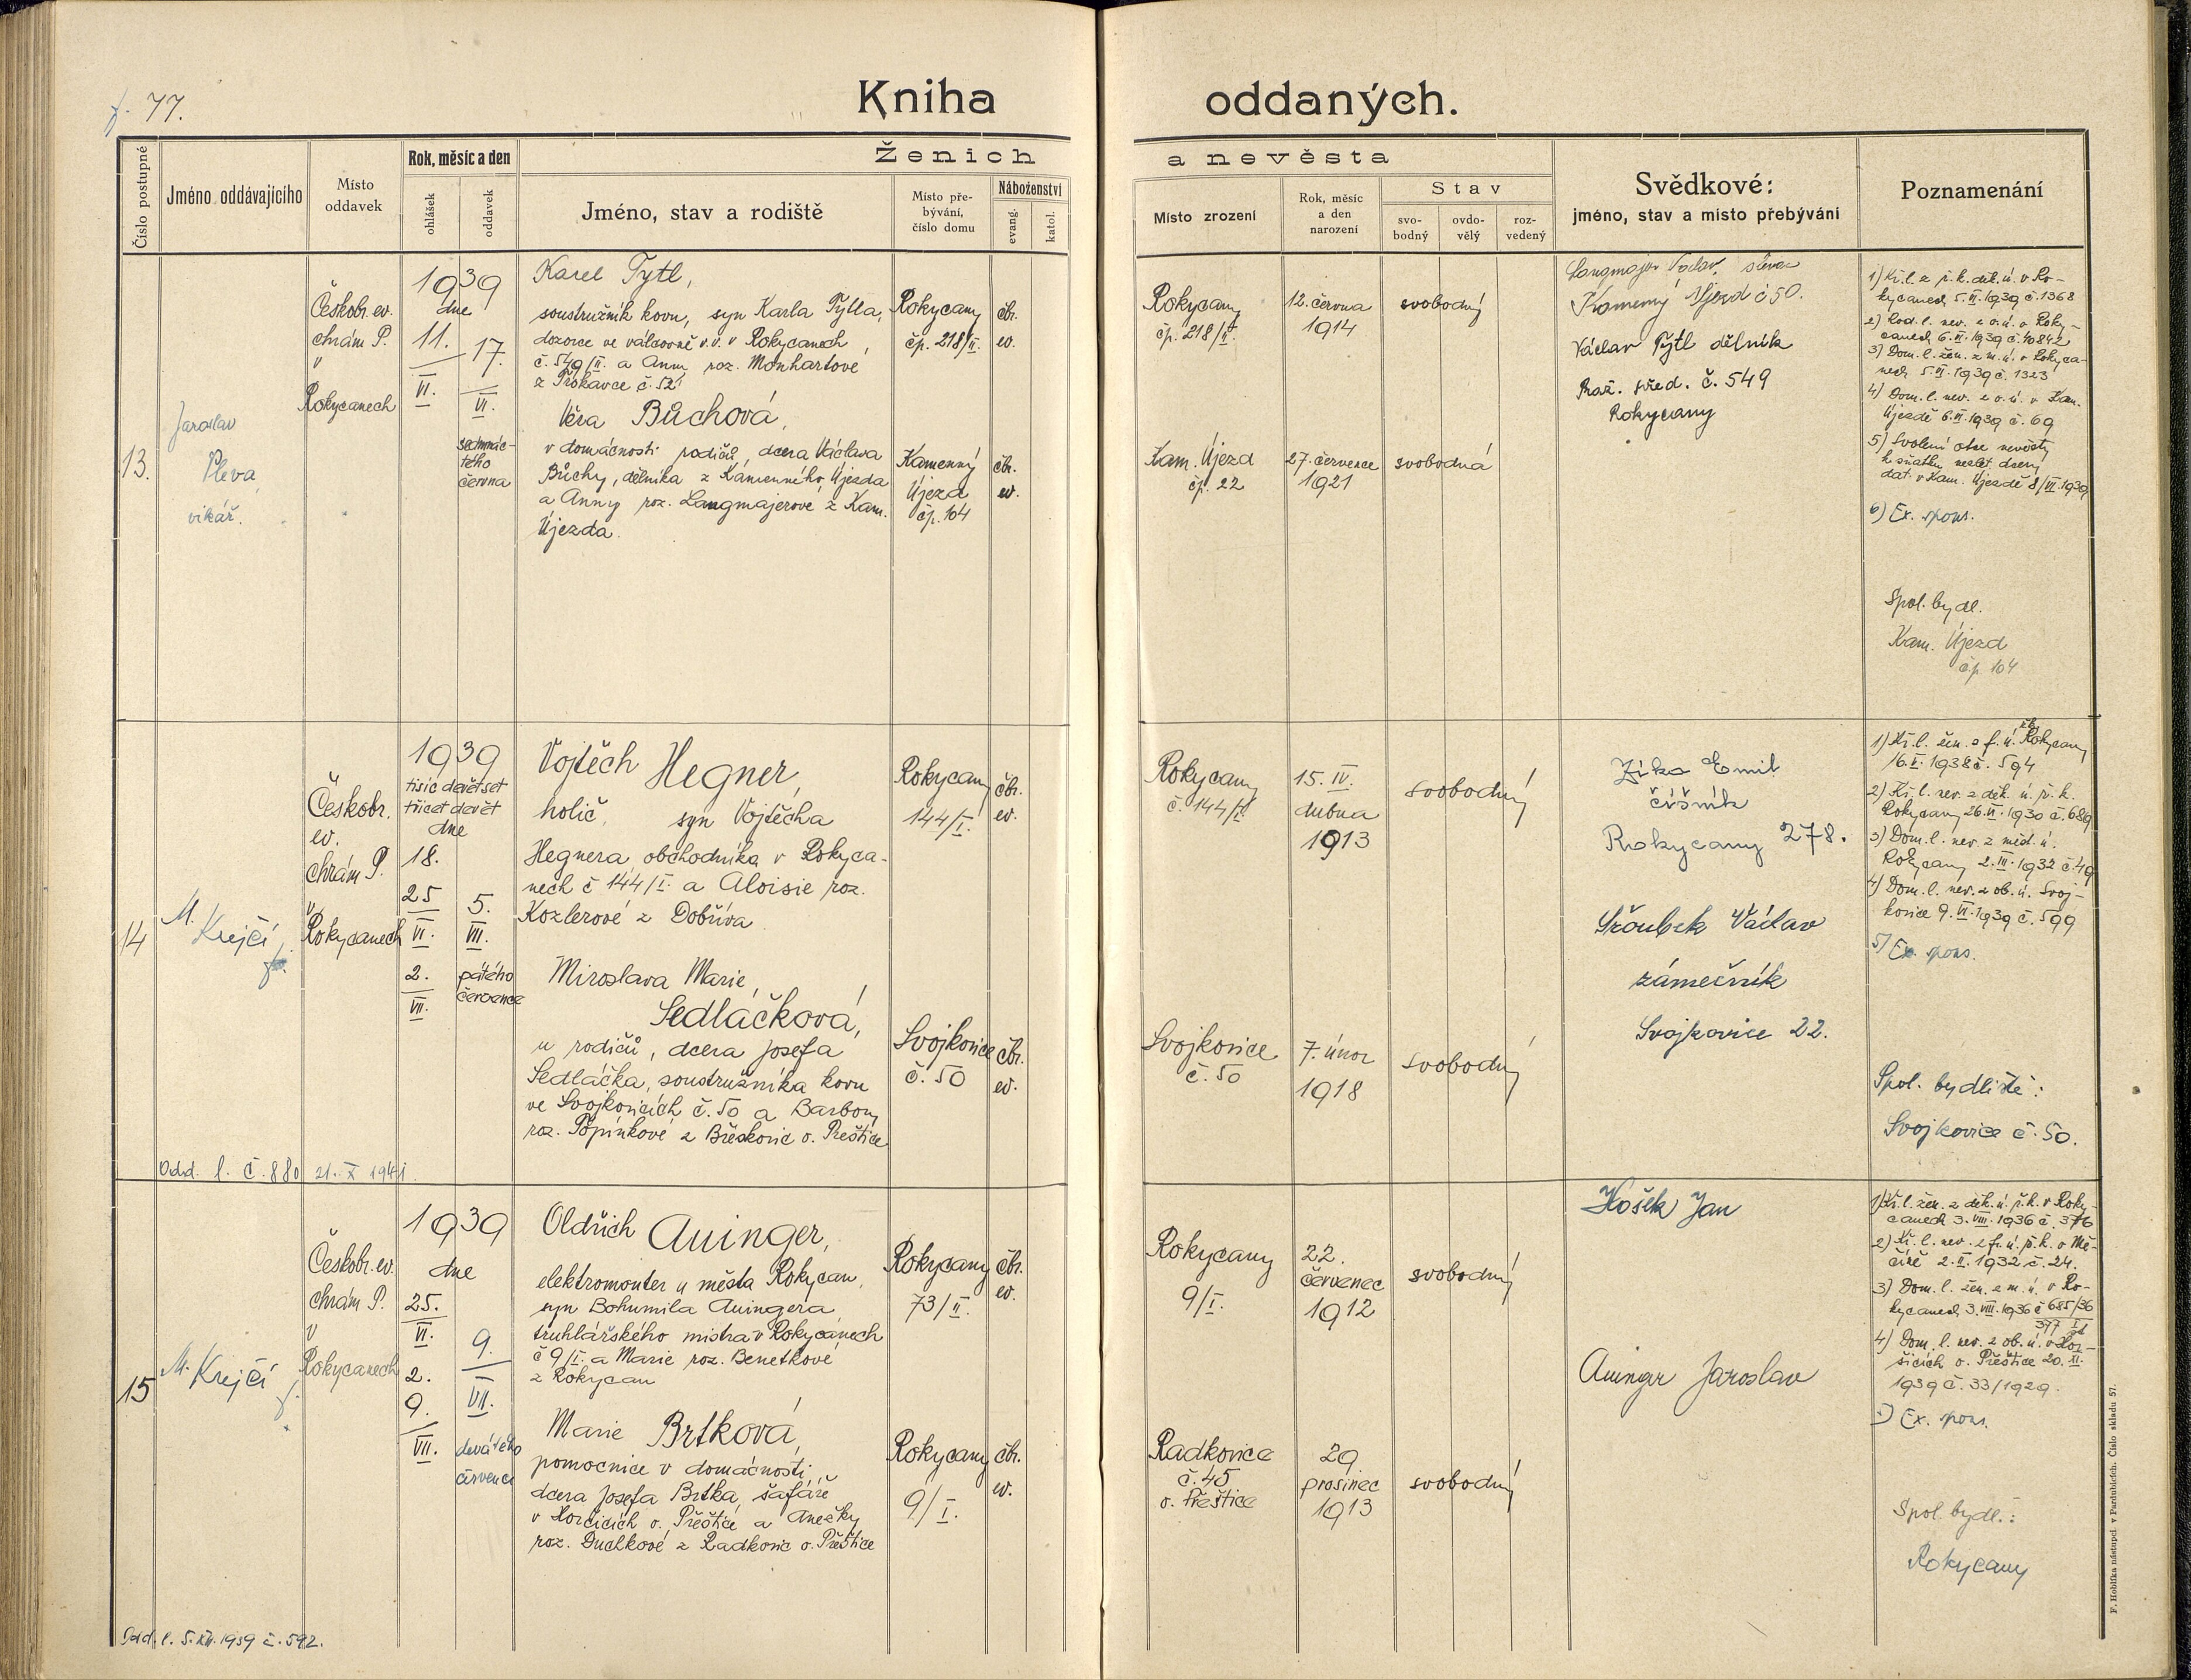 f. 77.
Kniha oddaných.
Číslo postupné
Jméno oddávajícího
Místo oddavek
Rok, měsíc a den
ohlášek
oddavek
Ženich a nevěsta
Jméno, stav a rodiště
Místo pře-
bývání,
číslo domu
Náboženství
evang.
katol.
Místo zrození
Rok, měsíc
a den
narození
Stav
svo-
bodný
ovdo-
vělý
roz-
vedený
Svědkové:
jméno, stav a místo přebývání
Poznamenání
13.
Jaroslav
Pleva,
vikář.
Českobr. ev.
chrám P.
v
Rokycanech
1939
dne
11.
VI.
17.
VI.
sedmnác-
tého
června
Karel Tytl,
soustružník kovu, syn Karla Tytla,
dozorce ve válcovně v.v. v Rokycanech
č. 549/II. a Anny roz. Monhartové
z Trokavce č. 52
Věra Bůchová,
v domácnosti rodičů, dcera Václava
Bůchy, dělníka z Kamenného Újezda
a Anny roz. Langmajerové z Kam.
Újezda.
Rokycany
čp. 218/II.
čbr.
ev.
Kamenný
Újezd
čp. 104
čbr.
ev.
Rokycany
čp. 218/II.
12. června
1914
svobodný
Kam. Újezd
čp. 22
27. července
1921
svobodná
Langmajer Václav,
Kamenný Újezd č 50.
Václav Tytl dělník
Praž. před. č. 549
Rokycany
1) Kř. l. z ř. k. děk. ú. v Ro-
kycanech 5. VI. 1939 č. 1368
2) Rod. l. nev. z o. ú. v Roky-
canech 6. VI. 1939 č. 10842
3) Dom. l. žen. z m. ú. v Rokyca-
nech 5. VI. 1939 č. 1323
4) Dom. l. nev. z o. ú. v Kam.
Újezdě 6. VI. 1939 č. 69
5) Svolení otce nevěsty
k sňatku nezlet. dcery
dat. v Kam. Újezdě 8/VI. 1939
6) Ex. spons.
Spol. bydl.
Kam. Újezd
čp. 104
14
M.
Krejčí
f.
Českobr.
ev.
chrám P.
v
Rokycanech
1939
tisíc devětset
třicet devět
dne
18.
25
VI.
2.
VII.
5.
VII.
pátého
července
Vojtěch Hegner,
holič, syn Vojtěcha
Hegnera, obchodníka v Rokyca-
nech č 144/I. a Aloisie roz.
Kozlerové z Dobříva
Miroslava Marie,
Sedláčková,
u rodičů, dcera Josefa
Sedláčka, soustružníka kovu
ve Svojkovicích č. 50 a Barbory
roz. Popínkové z Břeskovic o. Přeštice
Rokycany
144/I.
čbr.
ev.
Svojkovice
č. 50
čbr.
ev.
Rokycany
č. 144/I.
15. IV.
dubna
1913
svobodný
Svojkovice
č. 50
7. únor
1918
svobodný
Zíka Emil
číšník
Rokycany 278.
Sroubek Václav
zámečník
Svojkovice 22.
1) Kř. l. žen. z f. ú. čbr. Rokycany
16. V. 1938 č. 594
2) Kř. l. nev. z děk. ú. ř. k.
Rokycany 26. VI. 1930 č. 689
3) Dom. l. nev. z měst. ú.
Rokycany 2. III. 1932 č. 49
4) Dom. l. nev. z ob. ú. Svoj-
kovice 9. VI. 1939 č. 599
5) Ex. spons.
Spol. bydliště:
Svojkovice č. 50.
Odd. l. č. 880 21. X 1941.
15
M. Krejčí
f.
Českobr. ev.
chrám P.
v
Rokycanech
1939
dne
25.
VI.
2.
9.
VII.
9.
VII.
devátého
července
Oldřich Auinger,
elektromonter u města Rokycan,
syn Bohumila Auingera
truhlářského mistra v Rokycanech
č 9/I. a Marie roz. Benetkové
z Rokycan
Marie Brtková,
pomocnice v domácnosti,
dcera Josefa Brtka, šafáře
v Horčicích o. Přeštice a Anežky
roz. Duchkové z Radkovic o. Přeštice
Rokycany
73/II.
čbr.
ev.
Rokycany
9/I.
čbr.
ev.
Rokycany
9/I.
22.
červenec
1912
svobodný
Radkovice
č. 45
o. Přeštice
29
prosinec
1913
svobodný
Hošek Jan
Auinger Jaroslav
1) Kř. l. žen. z děk. ú. ř. k. v Roky-
canech 3. VIII. 1936 č. 376
2) Kř. l. nev. z f. ú. ř. k. v Mě-
číně 2. II. 1932 č. 24.
3) Dom. l. žen. z m. ú. v Ro-
kycanech 3. VIII. 1936 č 685/36
4) Dom. l. nev. z ob. ú. v Hor-
šicích o. Přeštice 20. II.
1939 č. 33/1929.
5) Ex. spons.
Spol. bydl.:
Rokycany
Odd. l. 5. XII. 1939 č. 592.
F. Hoblíka nástupci v Pardubicích. Číslo skladu 57.